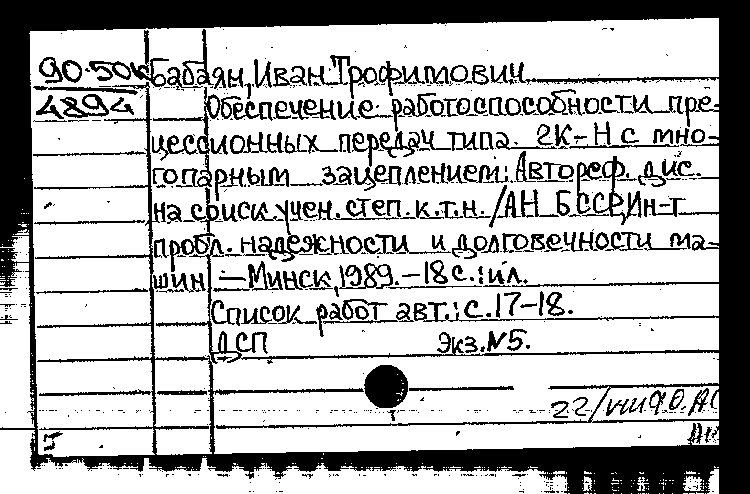 90-50к Бабаян, Иван Трофимович
4894 Обеспечение работоспособности пре-
цессионных передач типа 2К-Н с мно-
гопарным зацеплением: Автореф. дис.
на соиск. учен. степ. к.т.н. / АН БССР, Ин-т
пробл. надежности и долговечности ма-
шин. – Минск, 1989. – 18 с.: ил.
Список работ авт.: с. 17-18.
ДСП Экз. N5.
22/VIII 90.